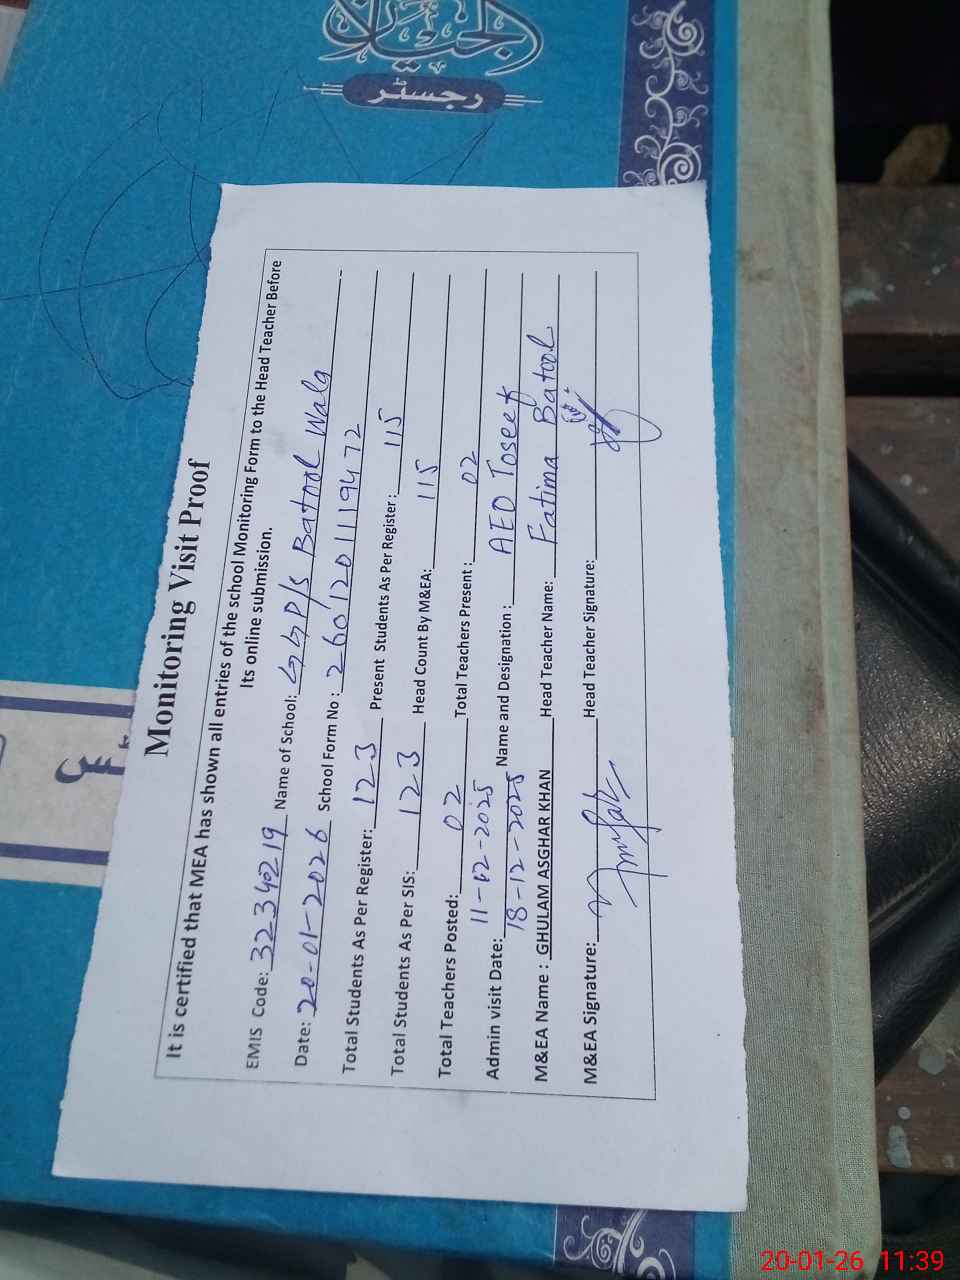 الجیلان
رجسٹر
Monitoring Visit Proof
It is certified that MEA has shown all entries of the school Monitoring Form to the Head Teacher Before
Its online submission.
EMIS Code: 32340219 Name of School: GGP/S Batool Wala
Date: 20-01-2026 School Form No: 2601201119472
Total Students As Per Register: 123 Present Students As Per Register: 115
Total Students As Per SIS: 123 Head Count By M&EA: 115
Total Teachers Posted: 02 Total Teachers Present: 02
11-02-2025
Admin visit Date: 18-12-2025 Name and Designation: AEO Toseef
M&EA Name: GHULAM ASGHAR KHAN Head Teacher Name: Fatima Batool
M&EA Signature: Head Teacher Signature:
20-01-26 11:39